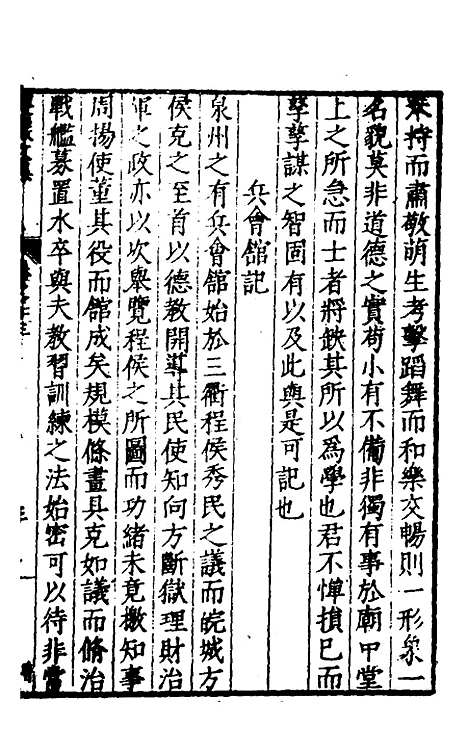 來持而肅敬萌生考擊蹈舞而和樂交暢則一形象一
名貌莫非道德之實苟小有不備非獨有事於廟中堂
上之所急而士者將缺其所以為學也君不憚損已而
孳孳謀之智固有以及此與是可記也
兵會館記
泉州之有兵會館始於三衢程侯秀民之議而皖城方
侯克之至首以德教開導其民使知向方斷獄理財治
軍之政亦以次舉覽程侯之所圖而功緒未竟檄知事
周揚使董其役而館成矣規模條畫具克如議而脩治
戰艦募置水卒與夫教習訓練之法始密可以待非常